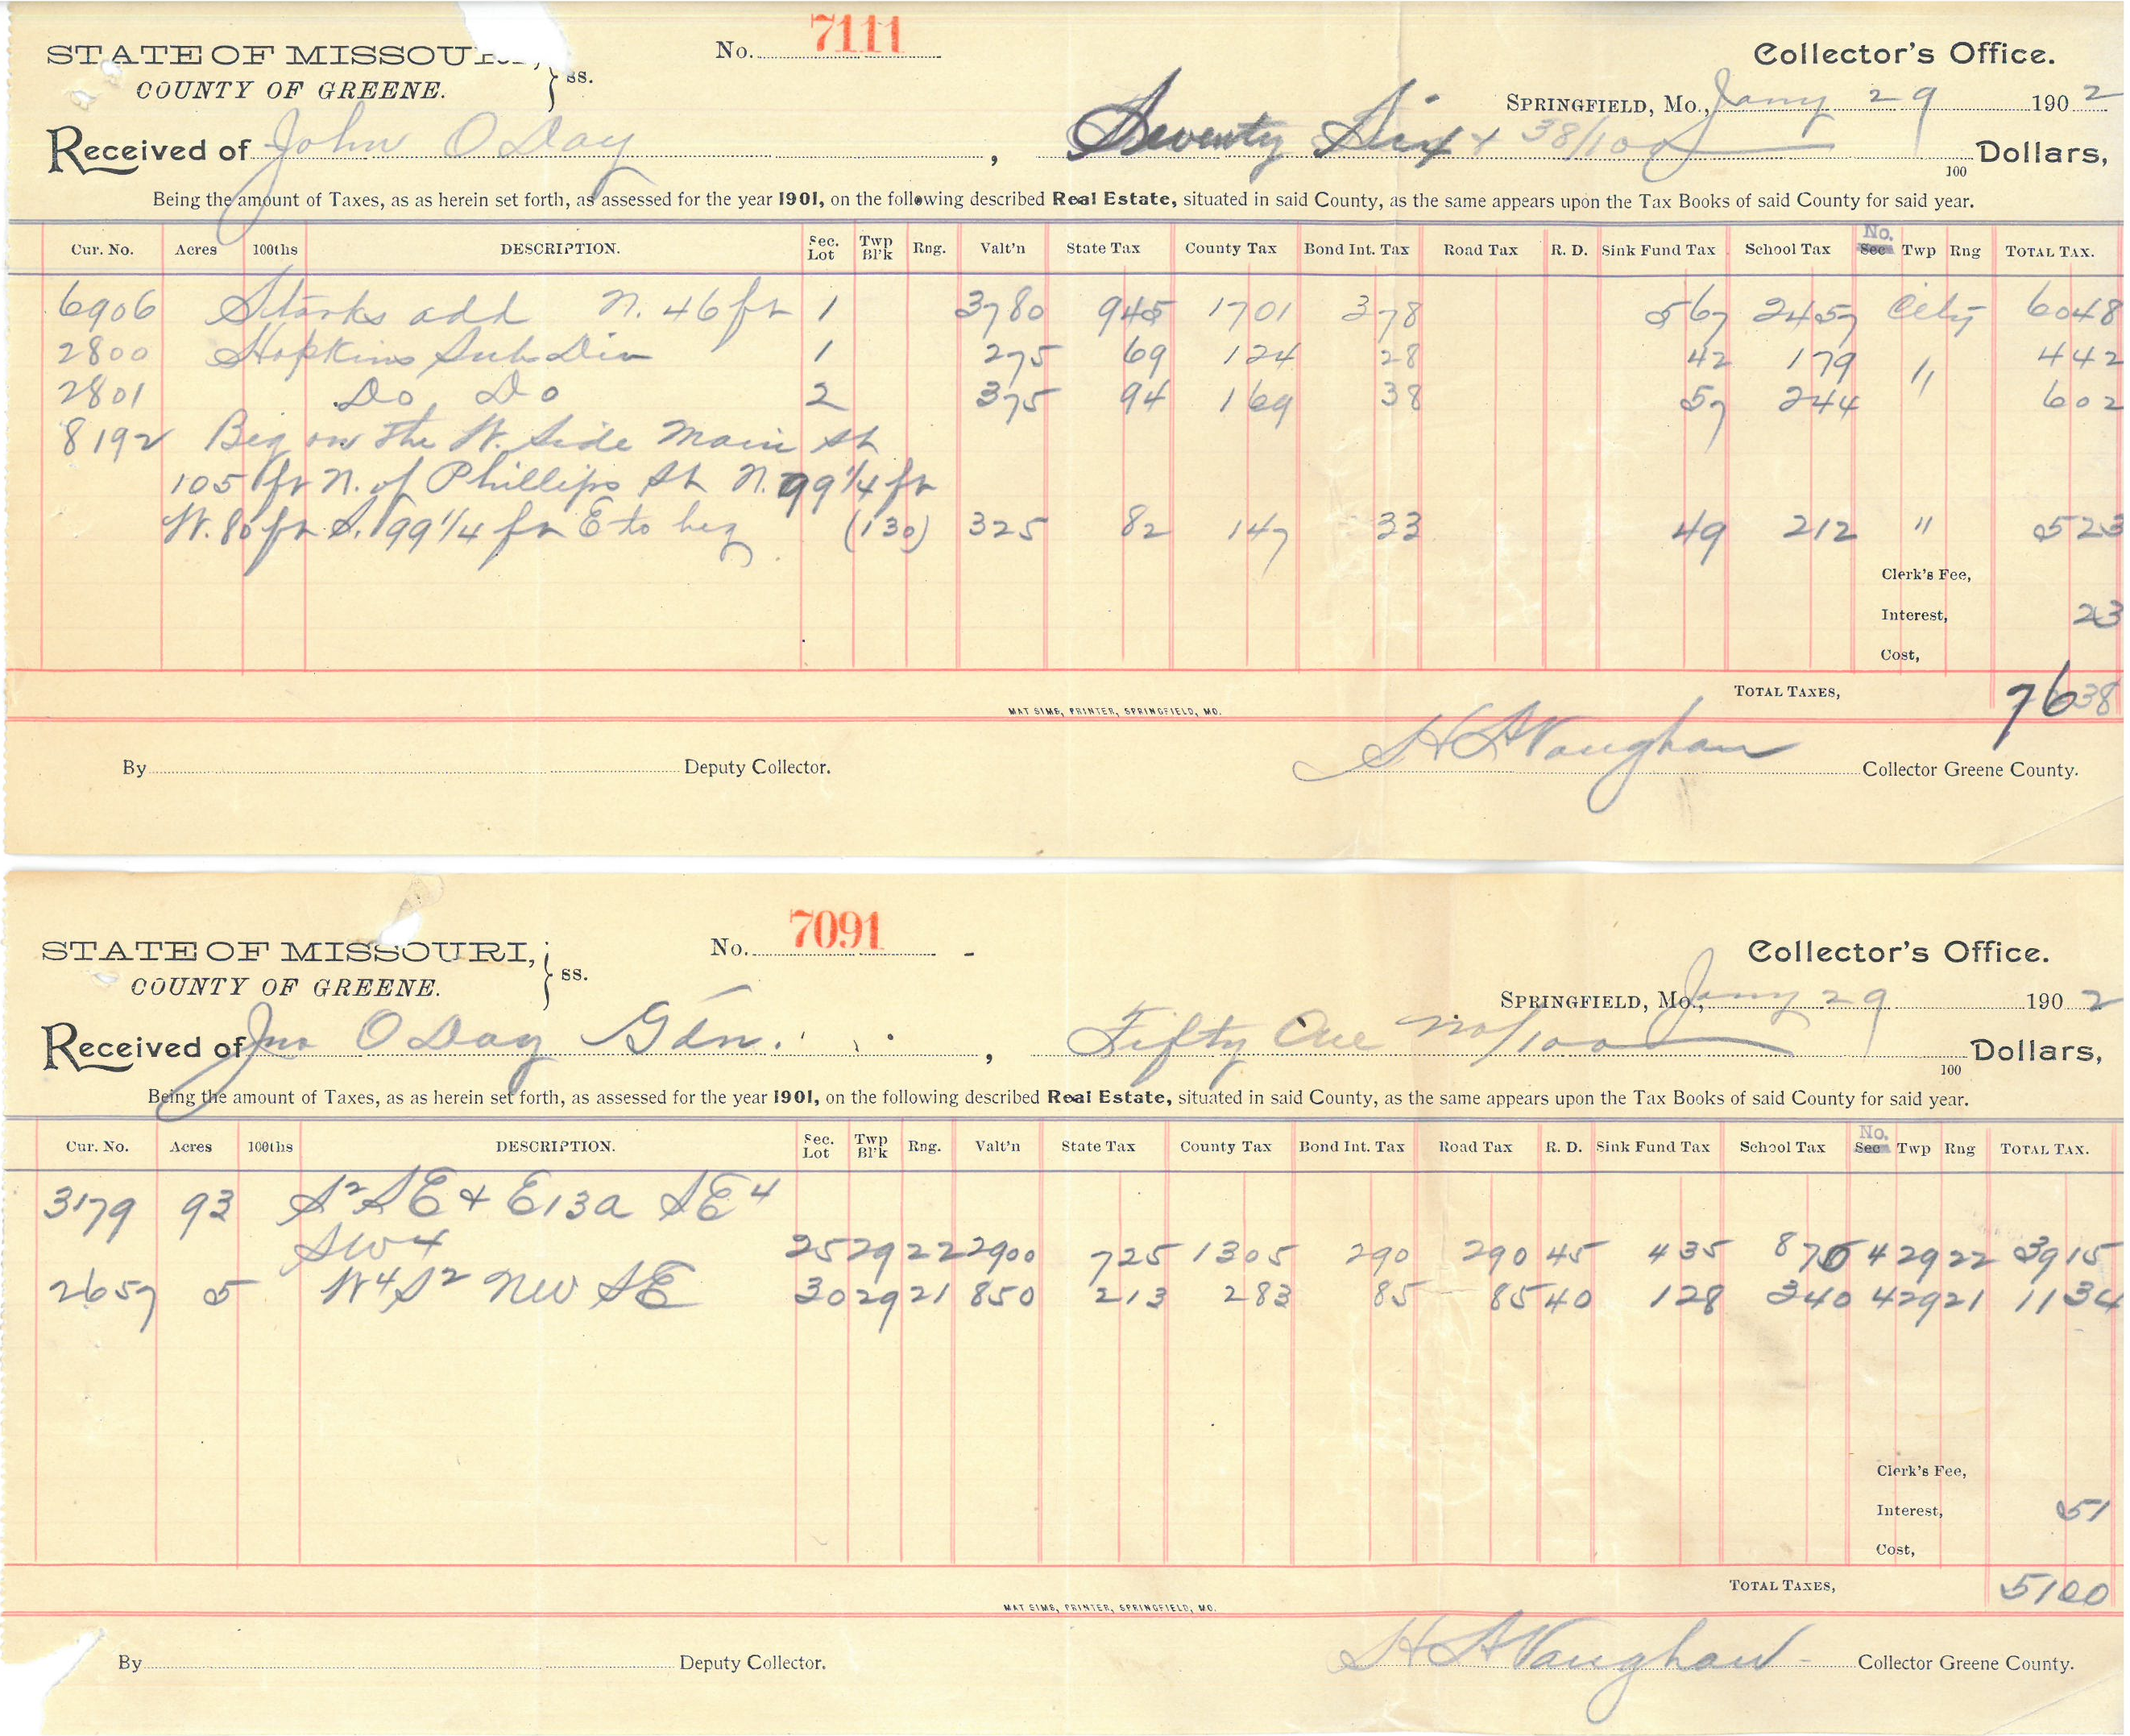 STATE OF MISSOURI, } ss. No. 7111 Collector's Office.
COUNTY OF GREENE. SPRINGFIELD, MO., Jany 29 1902
Received of John O Day, Seventy Six + 38/100 100 Dollars,
Being the amount of Taxes, as as herein set forth, as assessed for the year 1901, on the following described Real Estate, situated in said County, as the same appears upon the Tax Books of said County for said year.
Cur. No. Acres 100ths DESCRIPTION. Sec. Lot Twp Bl'k Rng. Valt'n State Tax County Tax Bond Int. Tax Road Tax R. D. Sink Fund Tax School Tax No. Sec Twp Rng TOTAL TAX.
6906 Starks add N. 46 ft 1 3780 945 1701 378 567 2457 City 6048
2800 Hopkins Sub Div 1 275 69 124 28 42 179 " 442
2801 Do Do 2 375 94 169 38 57 244 602
8192 Beg on the W. Side Main St
105 ft N. of Phillips St N. 99 1/4 ft
W. 80 ft S. 99 1/4 ft E to beg (130) 325 82 147 33 49 212 " 523
Clerk's Fee,
Interest, 23
Cost,
TOTAL TAXES, 7638
MAT SIMS, PRINTER, SPRINGFIELD, MO.
By Deputy Collector. H A Vaughan Collector Greene County.
STATE OF MISSOURI, } ss. No. 7091 Collector's Office.
COUNTY OF GREENE. SPRINGFIELD, MO., Jany 29 1902
Received of Jno O Day Gdn., Fifty One no/100 100 Dollars,
Being the amount of Taxes, as as herein set forth, as assessed for the year 1901, on the following described Real Estate, situated in said County, as the same appears upon the Tax Books of said County for said year.
Cur. No. Acres 100ths DESCRIPTION. Sec. Lot Twp Bl'k Rng. Valt'n State Tax County Tax Bond Int. Tax Road Tax R. D. Sink Fund Tax School Tax No. Sec Twp Rng TOTAL TAX.
3179 93 S2 SE + E13a SE4
SW4 25 29 22 2900 725 1305 290 290 45 435 870 4 29 22 3915
2657 5 W4 S2 NW SE 30 29 21 850 213 283 85 85 40 128 340 4 29 21 1134
Clerk's Fee,
Interest, 51
Cost,
TOTAL TAXES, 5100
MAT SIMS, PRINTER, SPRINGFIELD, MO.
By Deputy Collector. H A Vaughan Collector Greene County.